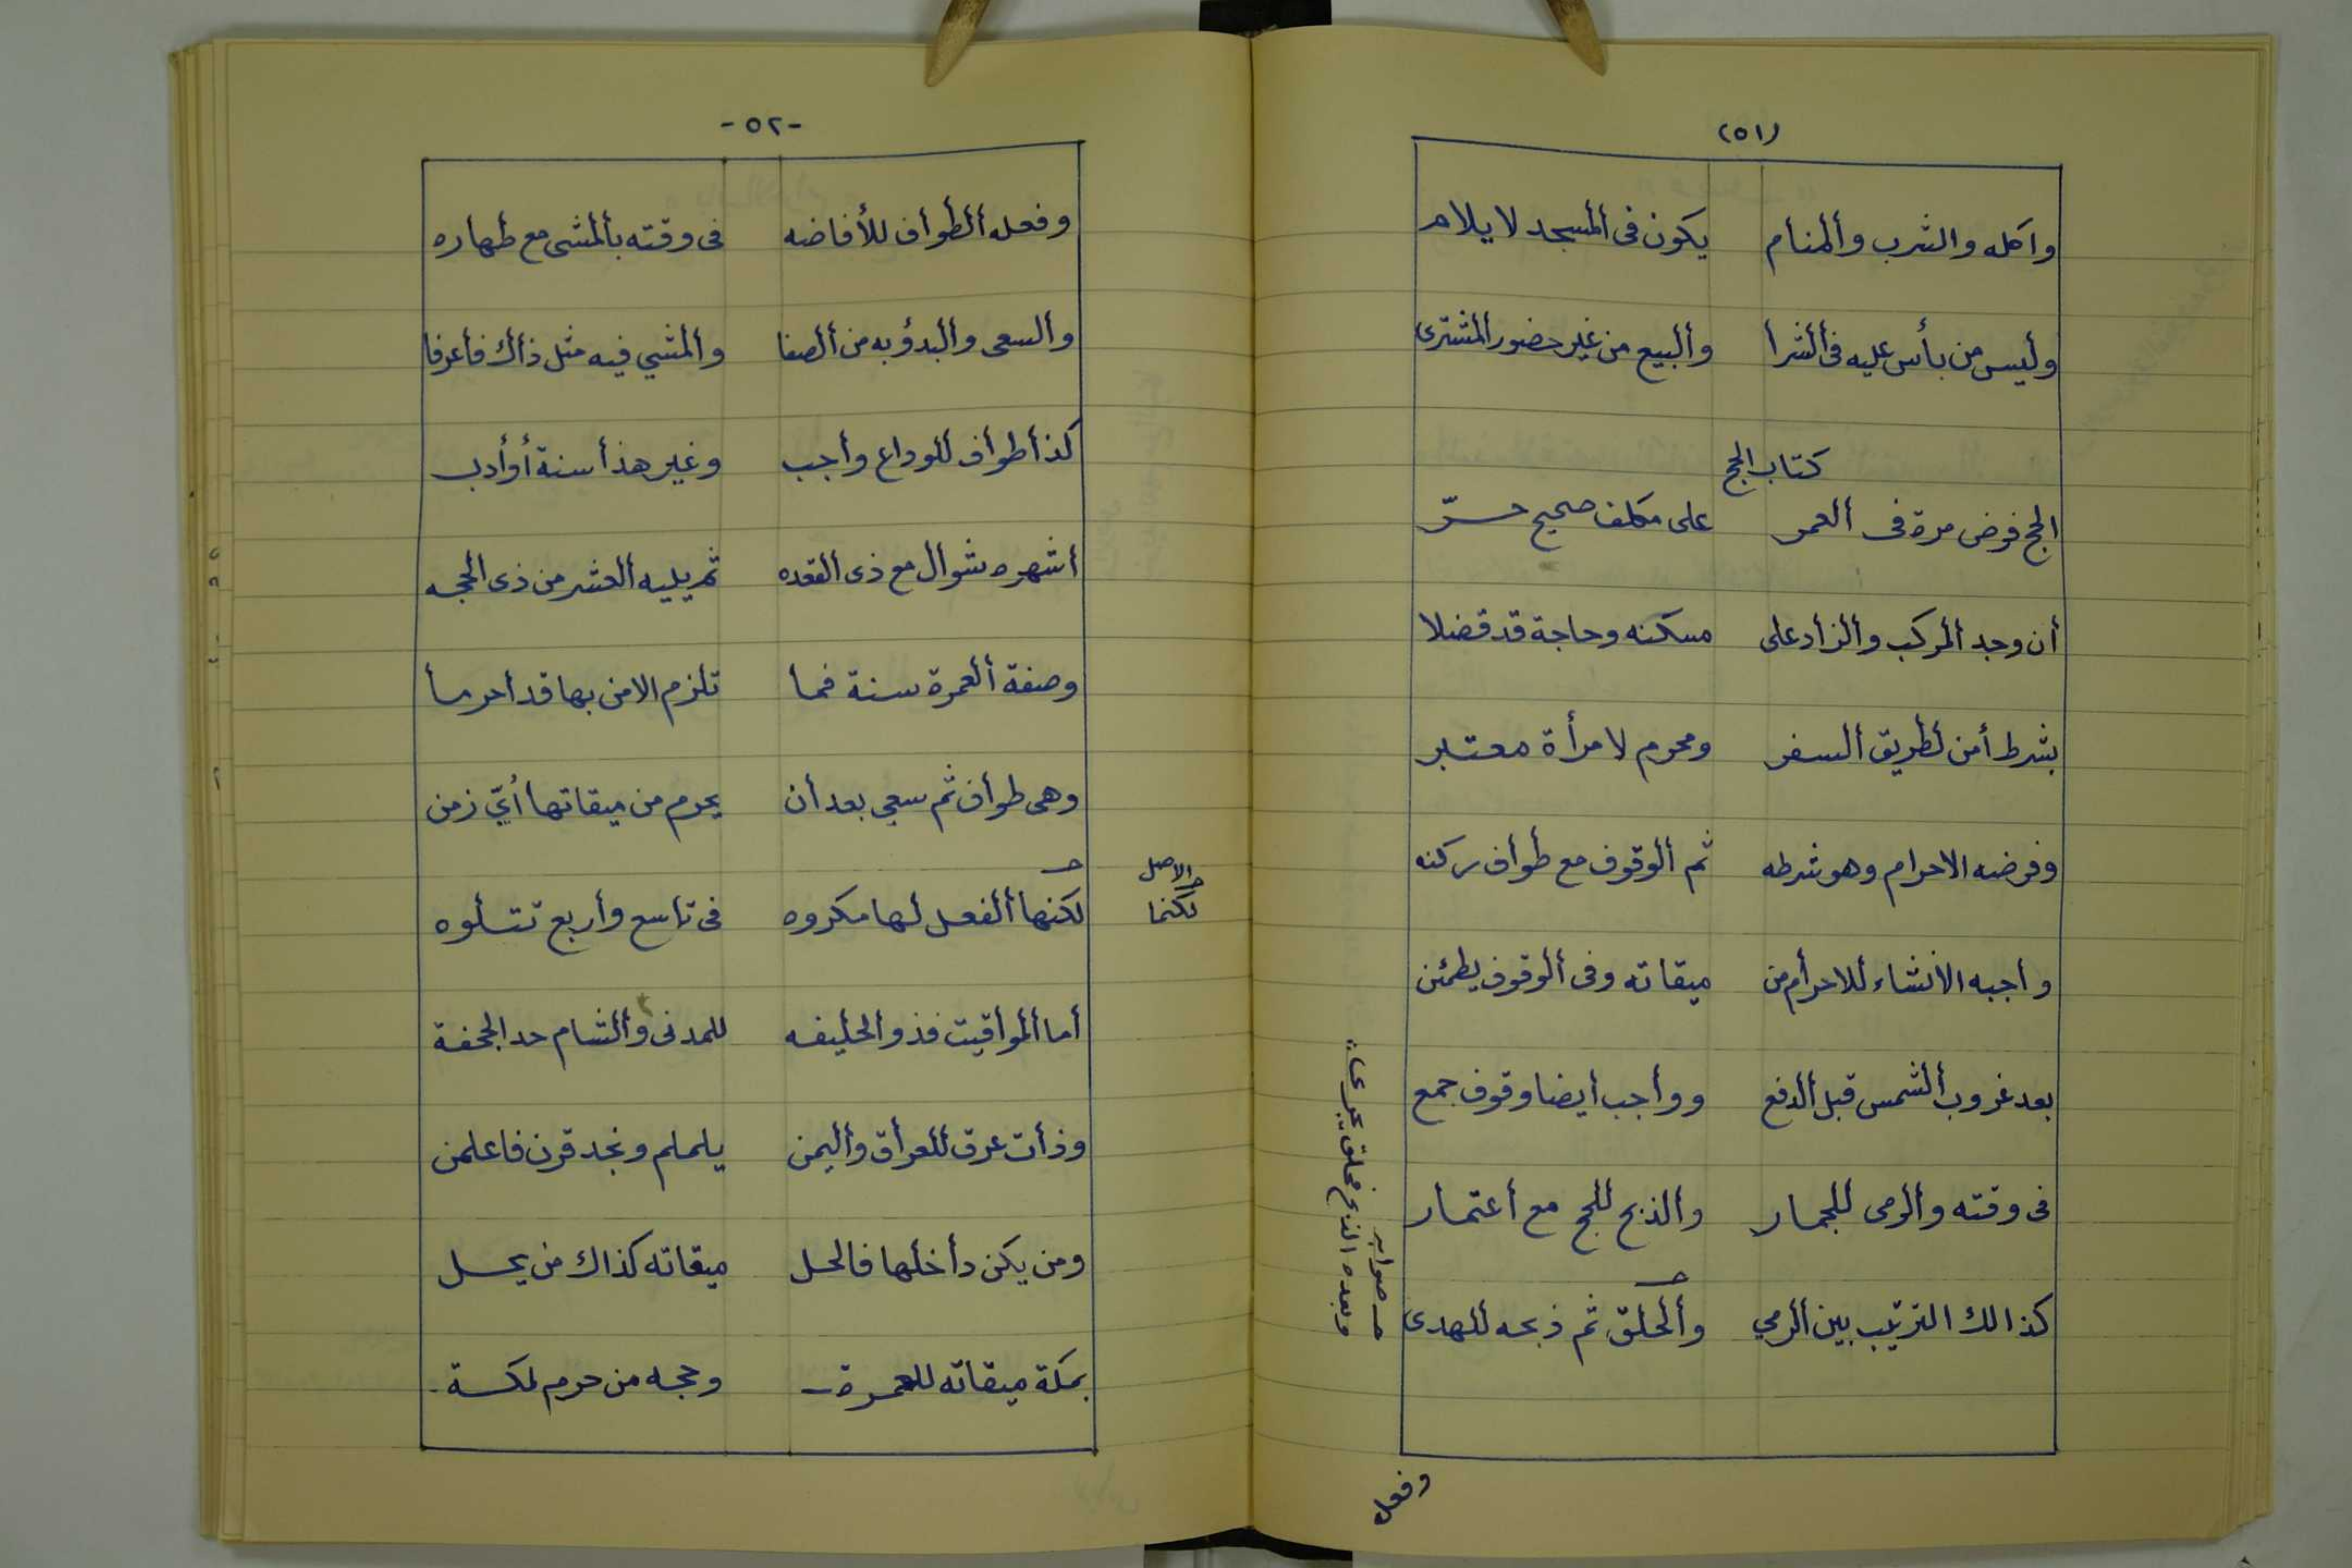 (٥١)
وأكله والشرب وألمنام يكون فى ألمسجد لا يلام
وليس من بأس عليه فى ألشرأ وألبيع من غير حضور المشترى
كتاب الحج
الحج فرض مرة فى ألعمر على مكلف صحيح حرّ
أن وجد ألمركب وألزأد على مسكنه وحاجة قد فضلا
بشرط أمن لطريق ألسفر ومحرم لامرأة معتبر
وفرضه الاحرام وهو شرطه ثم ألوقوف مع طوأف ركنه
وأجبه الانشاء للاحرأم من ميقاته وفى ألوقوف يطمئن
بعد غروب ألشمس قبل ألدفع ووأجب أيضا وقوف جمع
فى وقته وألرمى للجمار والذبح للحج مع أعتمار
كذالك الترتيب بين ألرمي وألحلق ثم ذبحه للهدى
صوابه
وبعده الذبح فحلق يجرى
وفعل
-٥٢-
وفعله ألطوأف للأفاضه فى وقته بألمشى مع طهاره
وألسعى وألبدؤ به من ألصفا وألمشي فيه مثل ذأك فأعرفا
كذأ طوأف للودأع وأجب وغير هذأ سنة أو أدب
أشهره شوال مع ذى القعده ثم يليه ألعشر من ذى الحجه
وصفة ألعمرة سنة فما تلزم الا من بها قد أحرما
وهى طوأف ثم سعي بعد أن يحرم من ميقاتها أيّ زمن
لكنها ألفعل لها مكروه فى تاسع وأربع تتلوه
والاصل
لكنما
أما ألموأقيت فذو الحليفه للمدنى وألشام حد الجحفة
وذأت عرق للعرأق وأليمن يلملم ونجد قرن فاعلمن
ومن يكن دأخلها فالحل ميقاته كذاك من يحل
بمكة ميقاته للعمرة وحجه من حرم لمكة